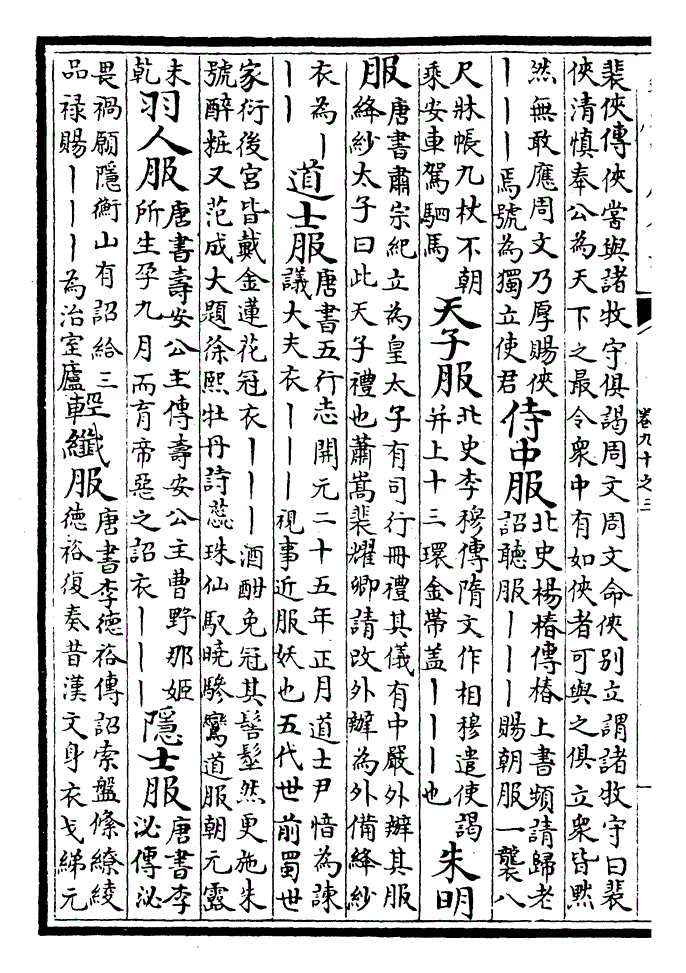 卷九十之三
一
裴俠傳俠嘗與諸牧守俱謁周文周文命俠別立謂諸牧守曰裴
俠清慎奉公為天下之最令衆中有如俠者可與之俱立衆皆黙
然無敢應周文乃厚賜俠
丨丨丨焉號為獨立使君
侍中服
北史楊椿傳椿上書頻請歸老
詔聽服丨丨丨賜朝服一襲八
尺牀帳几杖不朝
乘安車駕駟馬
天子服
北史李穆傳隋文作相穆遣使謁
并上十三環金帶盖丨丨丨也
朱明
服
唐書肅宗紀立為皇太子有司行冊禮其儀有中嚴外辦其服
絳紗太子曰此天子禮也蕭嵩裴耀卿請改外辦為外備絳紗
衣為丨
丨丨
道士服
唐書五行志開元二十五年正月道士尹愔為諫
議大夫衣丨丨丨視事近服妖也五代世前蜀世
家衍後宮皆戴金蓮花冠衣丨丨丨酒酣免冠其髻髽然更施朱
號醉粧又范成大題徐熙牡丹詩蕊珠仙馭曉驂鸞道服朝元露
未
乾
羽人服
唐書壽安公主傳壽安公主曹野那姬
所生孕九月而育帝惡之詔衣丨丨丨
隱士服
唐書李
泌傳泌
畏禍願隱衡山有詔給三
品祿賜丨丨丨為治室廬
輕纖服
唐書李德裕傳詔索盤絛繚綾
德裕復奏昔漢文身衣弋綈元